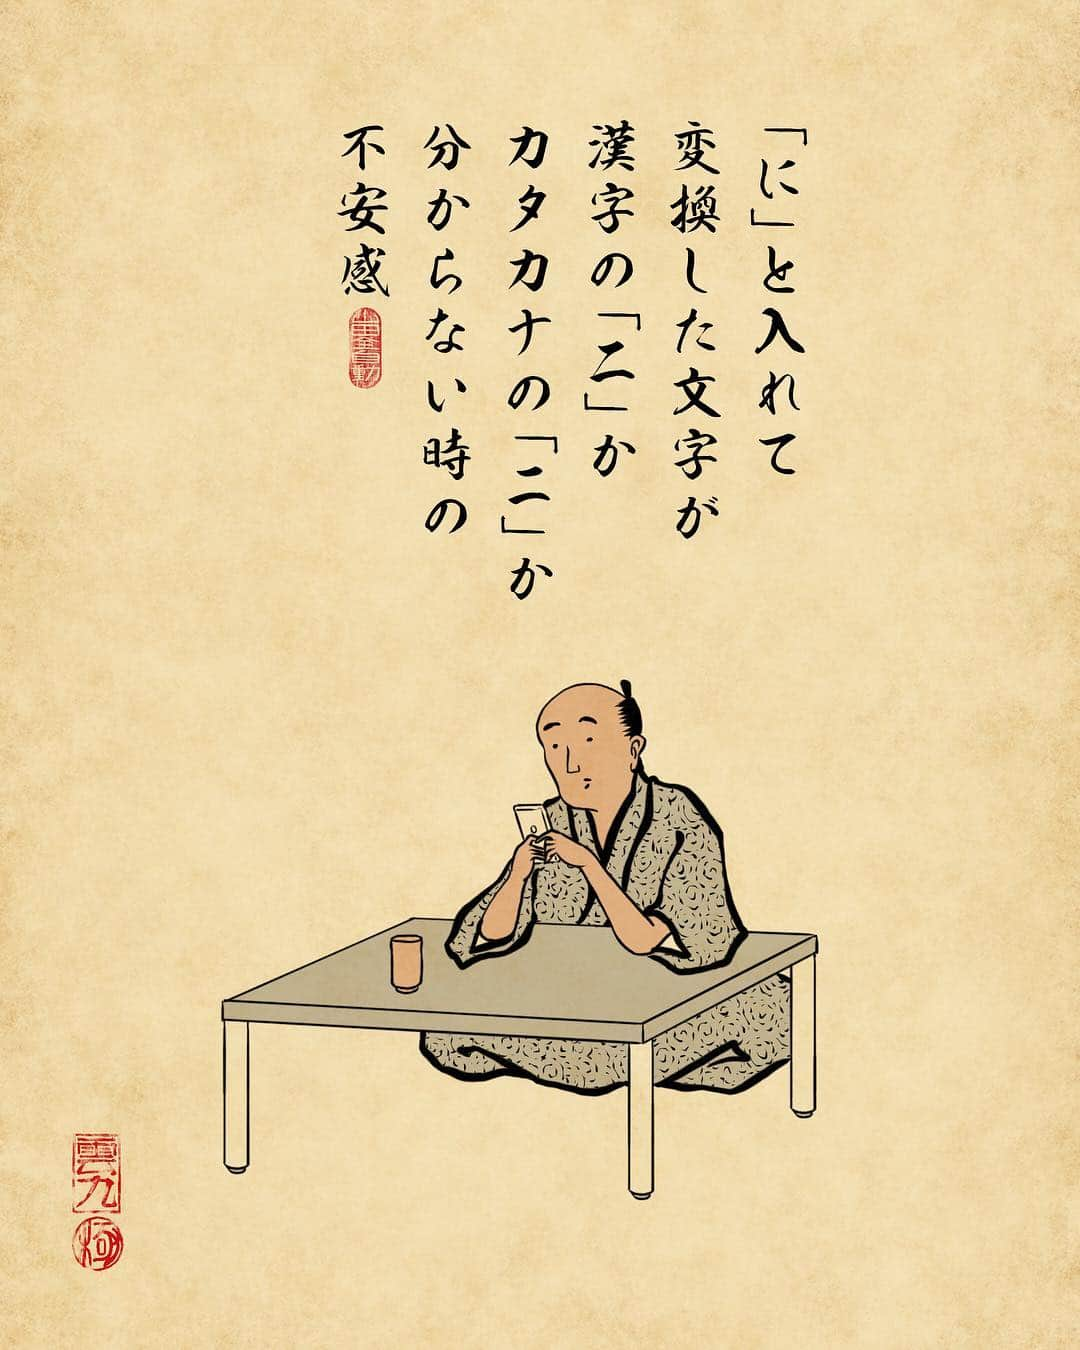 「に」と入れて
変換した文字が
漢字の「二」か
カタカナの「ニ」か
分からない時の
不安感